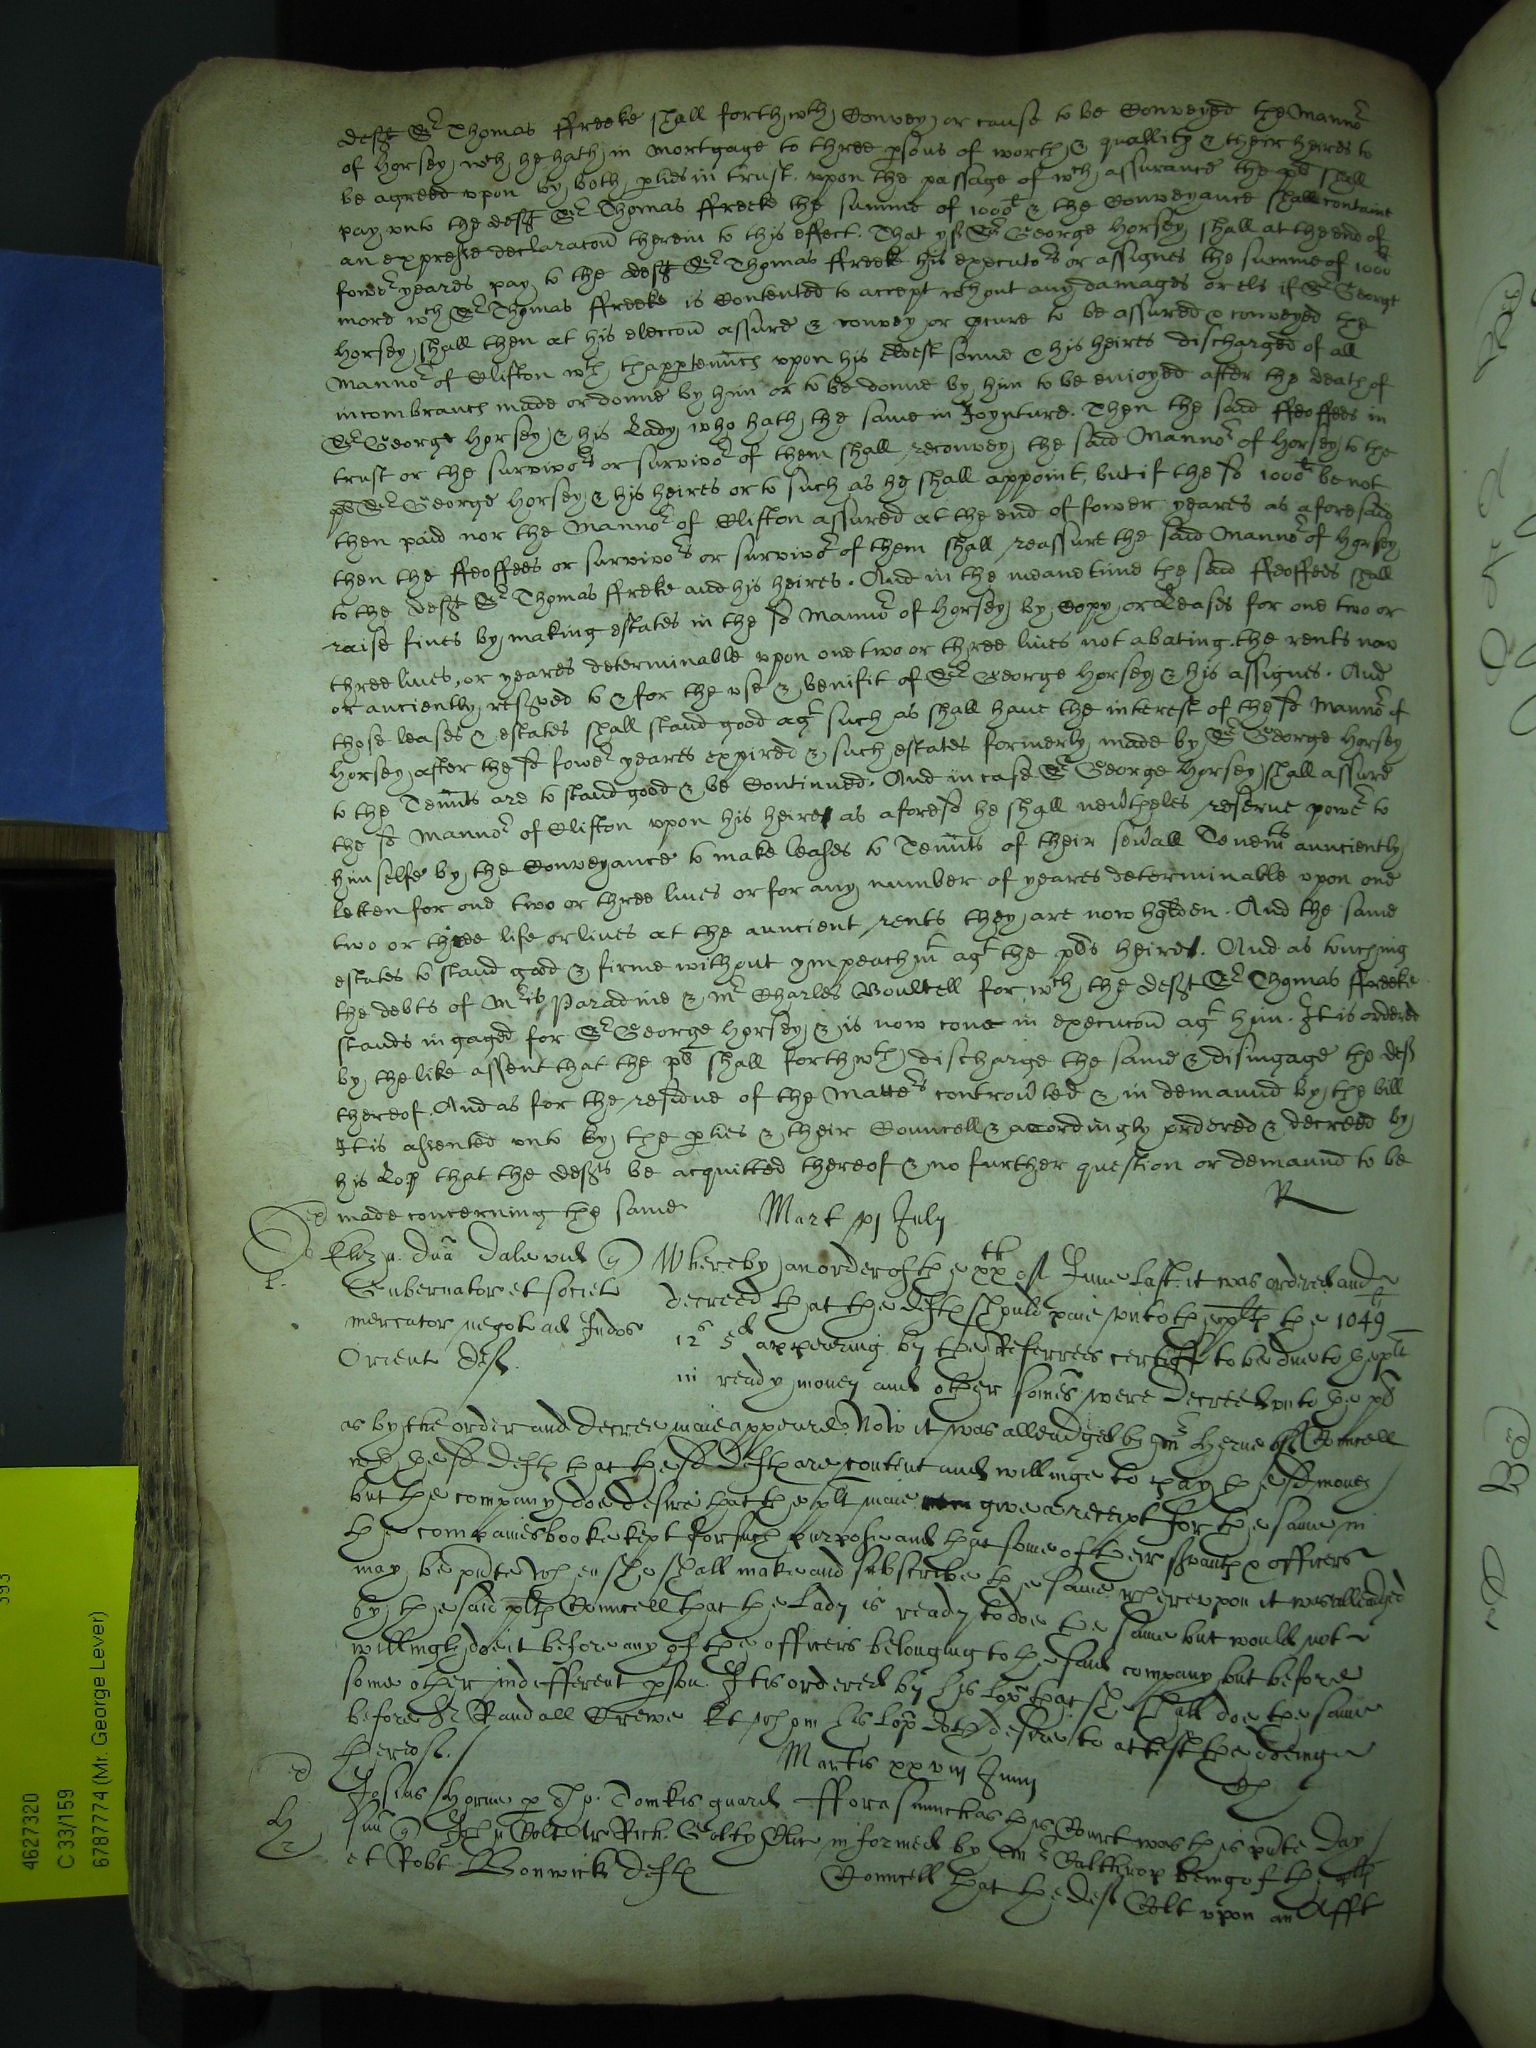 deft Sr Thomas ffreeke shall forthwth Convey or cause to be Conveyed the Mannor
of Horsey wch he hath in Mortgage to three psons of worth & quallity & their heires to
be agreed vpon by both pties in trust. vpon the passage of wch assurance the pl shall
pay vnto the deft Sr Thomas ffreeke the summe of 1000l & the Conveyance shall containe
an expresse declaracon therein to this effect. That yf Sr George Horsey shall at the end of
fower yeares pay to the deft Sr Thomas ffreeke his executors or assignes the summe of 1000l
more wch Sr Thomas ffreeke is Contented to accept wthout any damages or els if Sr George
Horsey shall then at his eleccon assure & convey or pcure to be assured & conveyed the
Mannor of Clifton wth thapptenncs vpon his eldest sonne & his heires discharged of all
incombrancs made or donne by him or to be donne by him to be enioyed after the death of
Sr George Horsey & his Lady who hath the same in Joynture. Then the said ffeoffees in
trust or the survivors or survivor of them shall reconvey the said Mannor of Horsey to the
pl Sr George Horsey & his heires or to such as he shall appoint, but if the sd 1000l be not
then paid nor the Mannor of Clifton assured at the end of fower yeares as aforesaid
then the ffeoffees or survivors or survivor of them shall reassure the said Mannor of Horsey
to the deft Sr Thomas ffreke and his heires. And in the meane time the said ffeoffees shall
raise fines by making estates in the sd Mannor of Horsey by Copy or Leases for one two or
three lives, or yeares determinable vpon one two or three lives not abating the rents now
or anciently reserved to & for the vse & benifit of Sr George Horsey & his assignes. And
those leases & estates shall stand good agt such as shall have the interest of the sd Mannor of
Horsey after the sd fower yeares expired & such estates formerly made by Sr George Horsey
to the Tennts are to stand good & be Continued. And in case Sr George Horsey shall assure
the sd Mannor of Clifton vpon his heires as aforesd he shall nevtheles reserve power to
himselfe by the Conveyance to make leases to Tennts of their sevall Tenemts aunciently
letten for one two or three lives or for any number of yeares determinable vpon one
two or three life or lives at the auncient rents they are now holden. And the same
estates to stand good & firme without ympeachmt agt the pls heires. And as touching
the debts of Mris Paradine & mr Charles Boultell for wch the deft Sr Thomas ffreeke
stands ingaged for Sr George Horsey & is now come in execucon agt him. It is ordered
by the like assent that the pl shall forthwth discharge the same & disingage the deft
thereof. And as for the residue of the Matters controvted & in demaund by the bill
It is assented vnto by the pties & their Councell & accordingly ordered & decreed by
his Lop that the defts be acquitted thereof & no further question or demaund to be
made concerning the same
R
Mart pr July
Eliz a. dna Dale vid q
Gubernator et societ
mercator negot ad Indos
Orient deft
Whereby an order of the xxth of June last it was ordered and
decreed that the defts should paie vnto the plt the 1049l
12s 5d appearing by the Referrees certiff to be due to the plt
in ready money and other somes were decreed vnto the pl
as by the order and decree maie appeare Now it was alleadged by mr Herne of Councell
wth the sd defts that the sd defts are content and willinge to pay the sd money
but the company doe desire that the plt maie give a receipt for the same in
the companies booke kept for such purpose and that some of their servants & officers
may be pnte when she shall make and subscribe the same wherevpon it was alleadged
by the said plts Councell that the Lady is ready to doe the same but would not
willingly doe it before any of the officers belonging to the said company but before
some other indifferent pson. It is ordered by his Lop that she shall doe the same
before Sr Randall Crewe Kt whom his Lop doth desire to attest the doeing
therof.
Martis xxviij Junij
Josias Horne p Tho. Tomkis guard
suu q Joh Colt Ar Rich. Golty Clic
et Robt Bonwick defts
Fforasmuch as this Court was this pnte day
informed by mr Calthrop being of the plts
Councell that the deft Colt vpon an Afft
4627320
C 33/159
6787774 (Mr. George Lever)